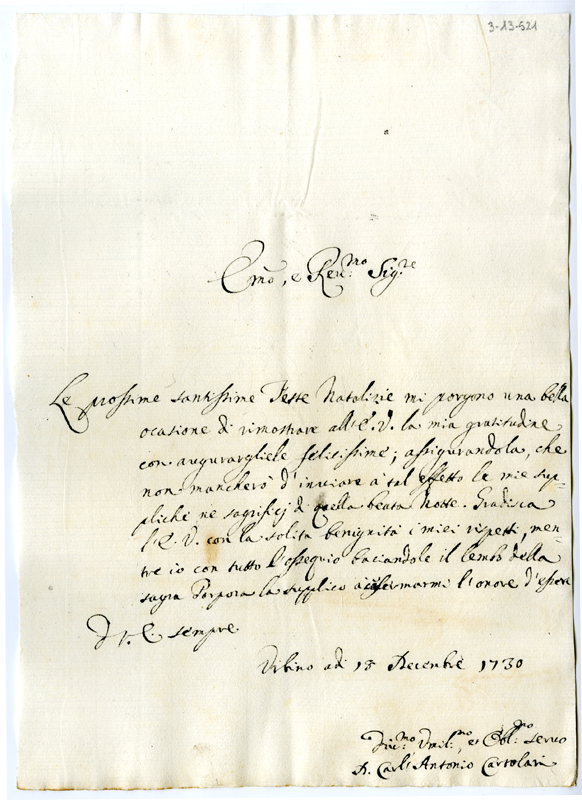 3-13-521
Emo, e Reu:mo Sig.re
Le prossime santissime Feste Natalizie mi porgono una bella
ocasione di rimostrare all'E. V. la mia gratitudine
con augurargliele felicissime; assigurandola, che
non mancherò d'inviare a tal effetto le mie sup-
pliche ne sagrificj di quella beata Notte. Gradisca
l'E. V. con la solita benignità i miei rispetti, men-
tre io con tutto l'ossequio baciandole il lembo della
sagra Porpora la supplico a confermarmi l'onore d'essere
D V. E. sempre
Vrbino adi 13 Decembre 1730
Diu:mo Vmil:mo, et Obl:mo seruo
Carl' Antonio Cartolari